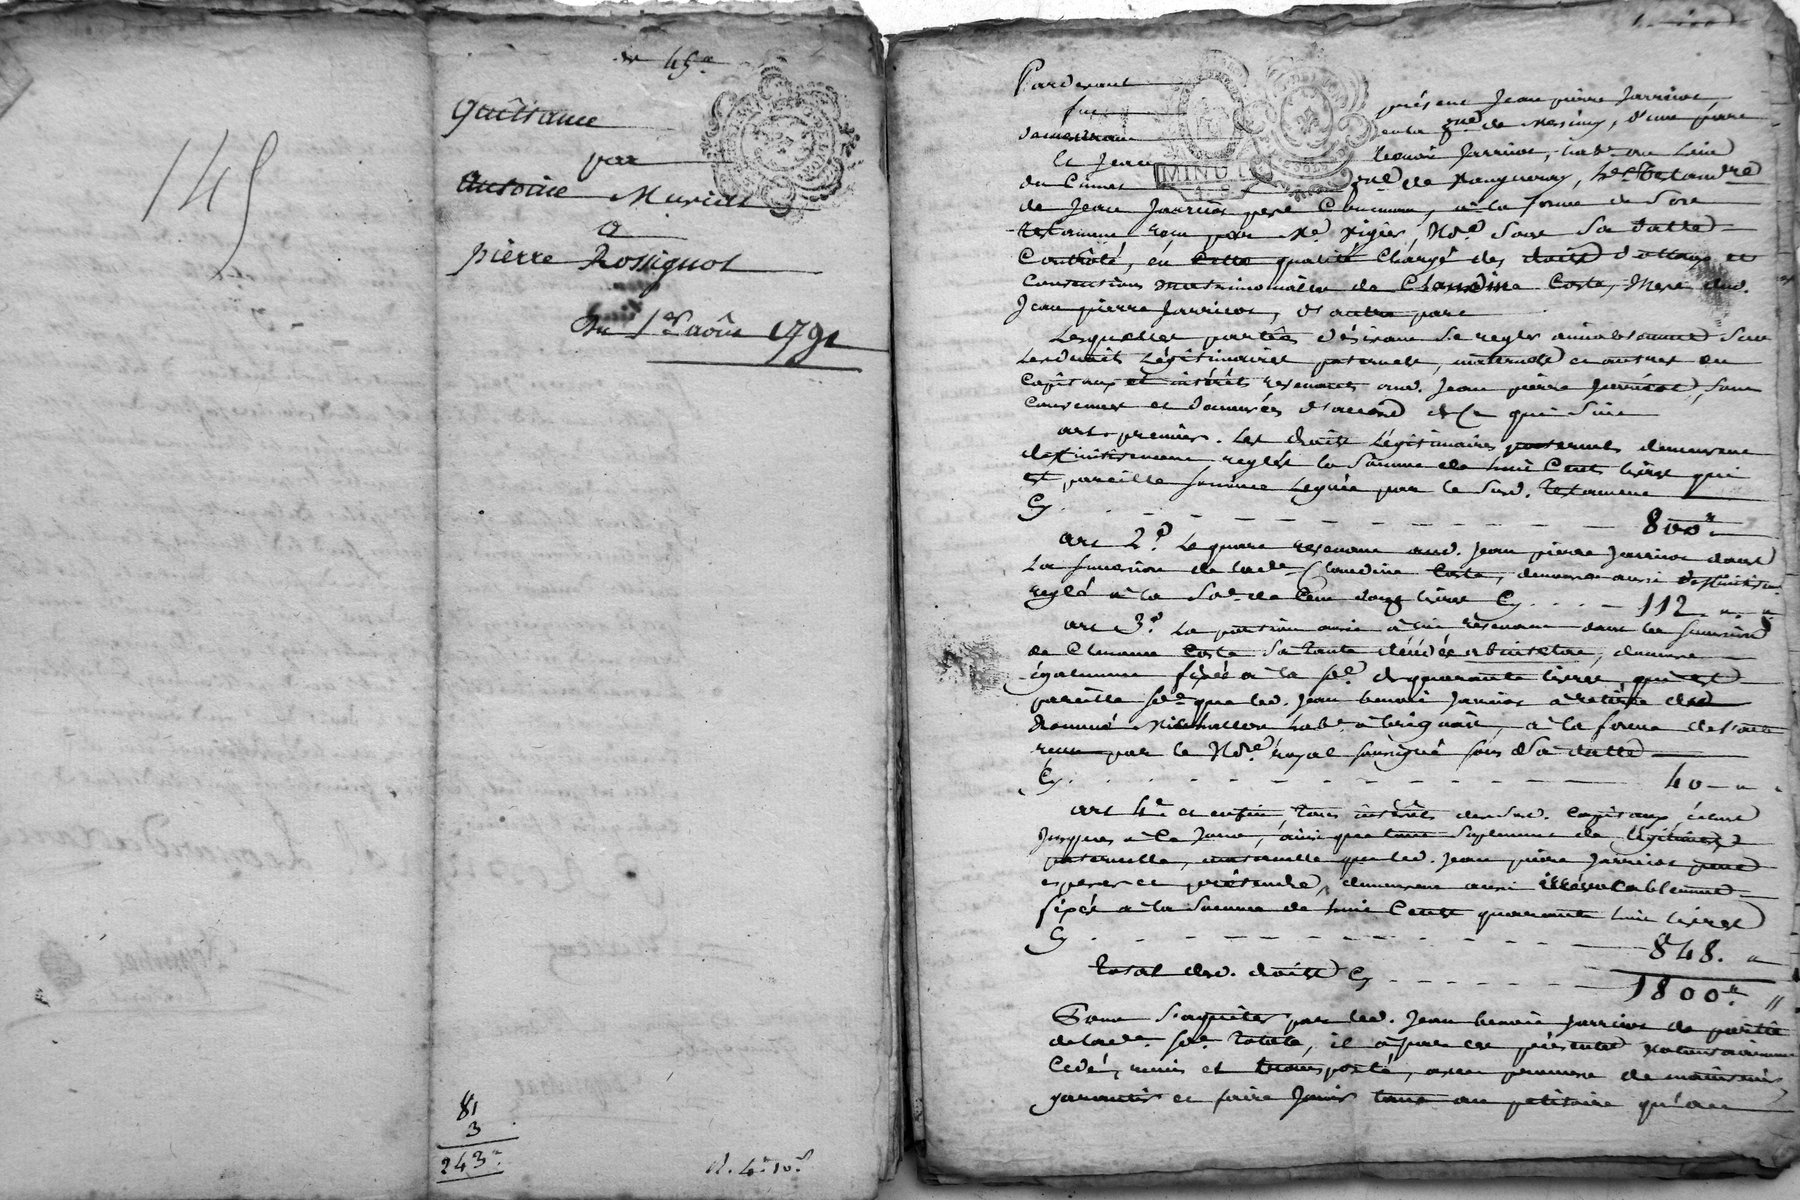 145
45.
Quittance
par
Antoine Muriat
à
pierre Rossignol
Du 1er aôut 1791
81
3
243
Pardevant
fut présent Jean pierre Jarricot
demeurant en la de Messimy, d'une part
Et Jean Benoit Jarricot, au lieu
du de
MINUT
de Jean Jarricot pere Commun, à la forme de Son
testament reçu par Me. Nre. Sous Sa datte
Controlé, en Cette qualité Chargé des droits et
Conventions matrimoniales de Claudine Coste, Mere dud.
Jean pierre Jarricot, d'autre part
Lesquelles parties désirant Se regler amiablement Sur
Les droits Légitimaires paternels, maternels et autres en
Capitaux et intérêts revenants aud. Jean pierre Jarricot, Sont
Convenues et demeurées d'accord de Ce qui Suit
art. premier. Les droits Légitimaires paternels demeurent
deffinitivement reglés la Somme de huit Cents livres qui
est pareille Somme Leguée par le Susd. testament
Cy - - - 800
art 2e. Le quart revenant aud. Jean pierre Jarricot dans
La succession de lade. Claudine Coste, demeure aussi
reglé à la Se. de Cent douze livres Cy . . . 112
art 3e. La portion aussi à lui revenant dans la Succession
de Coste Sa tante décédée abintestat, demeure
également fixée à la Se. de quarante livres, qui est
pareille Se. que led. Jean benoit Jarricot à retirée de
à la forme de
reçu par le Nre. royal Soussigné Sous Sa datte
Cy . . . 40
art 4e et enfin, tous intérêts desd. Capitaux,
jusques à Ce Jour, ainsi que tout Suplement de légitimes
paternelle, maternelle que led. Jean pierre Jarricot peut
esperer et prétendre, demeurent aussi irrévocablement
fixés à la Somme de huit Cents quarante huit livres
Cy . . . 848.
Total desd. droits Cy . . . 1800
Pour S'aquiter par led. Jean benoit Jarricot de partie
de lade. Se. totale, il à par Ces présentes volontairement
Cedé, remis et transporté, avec promesse de maintenir
garantir et faire Jouir tant au petitoire qu'au